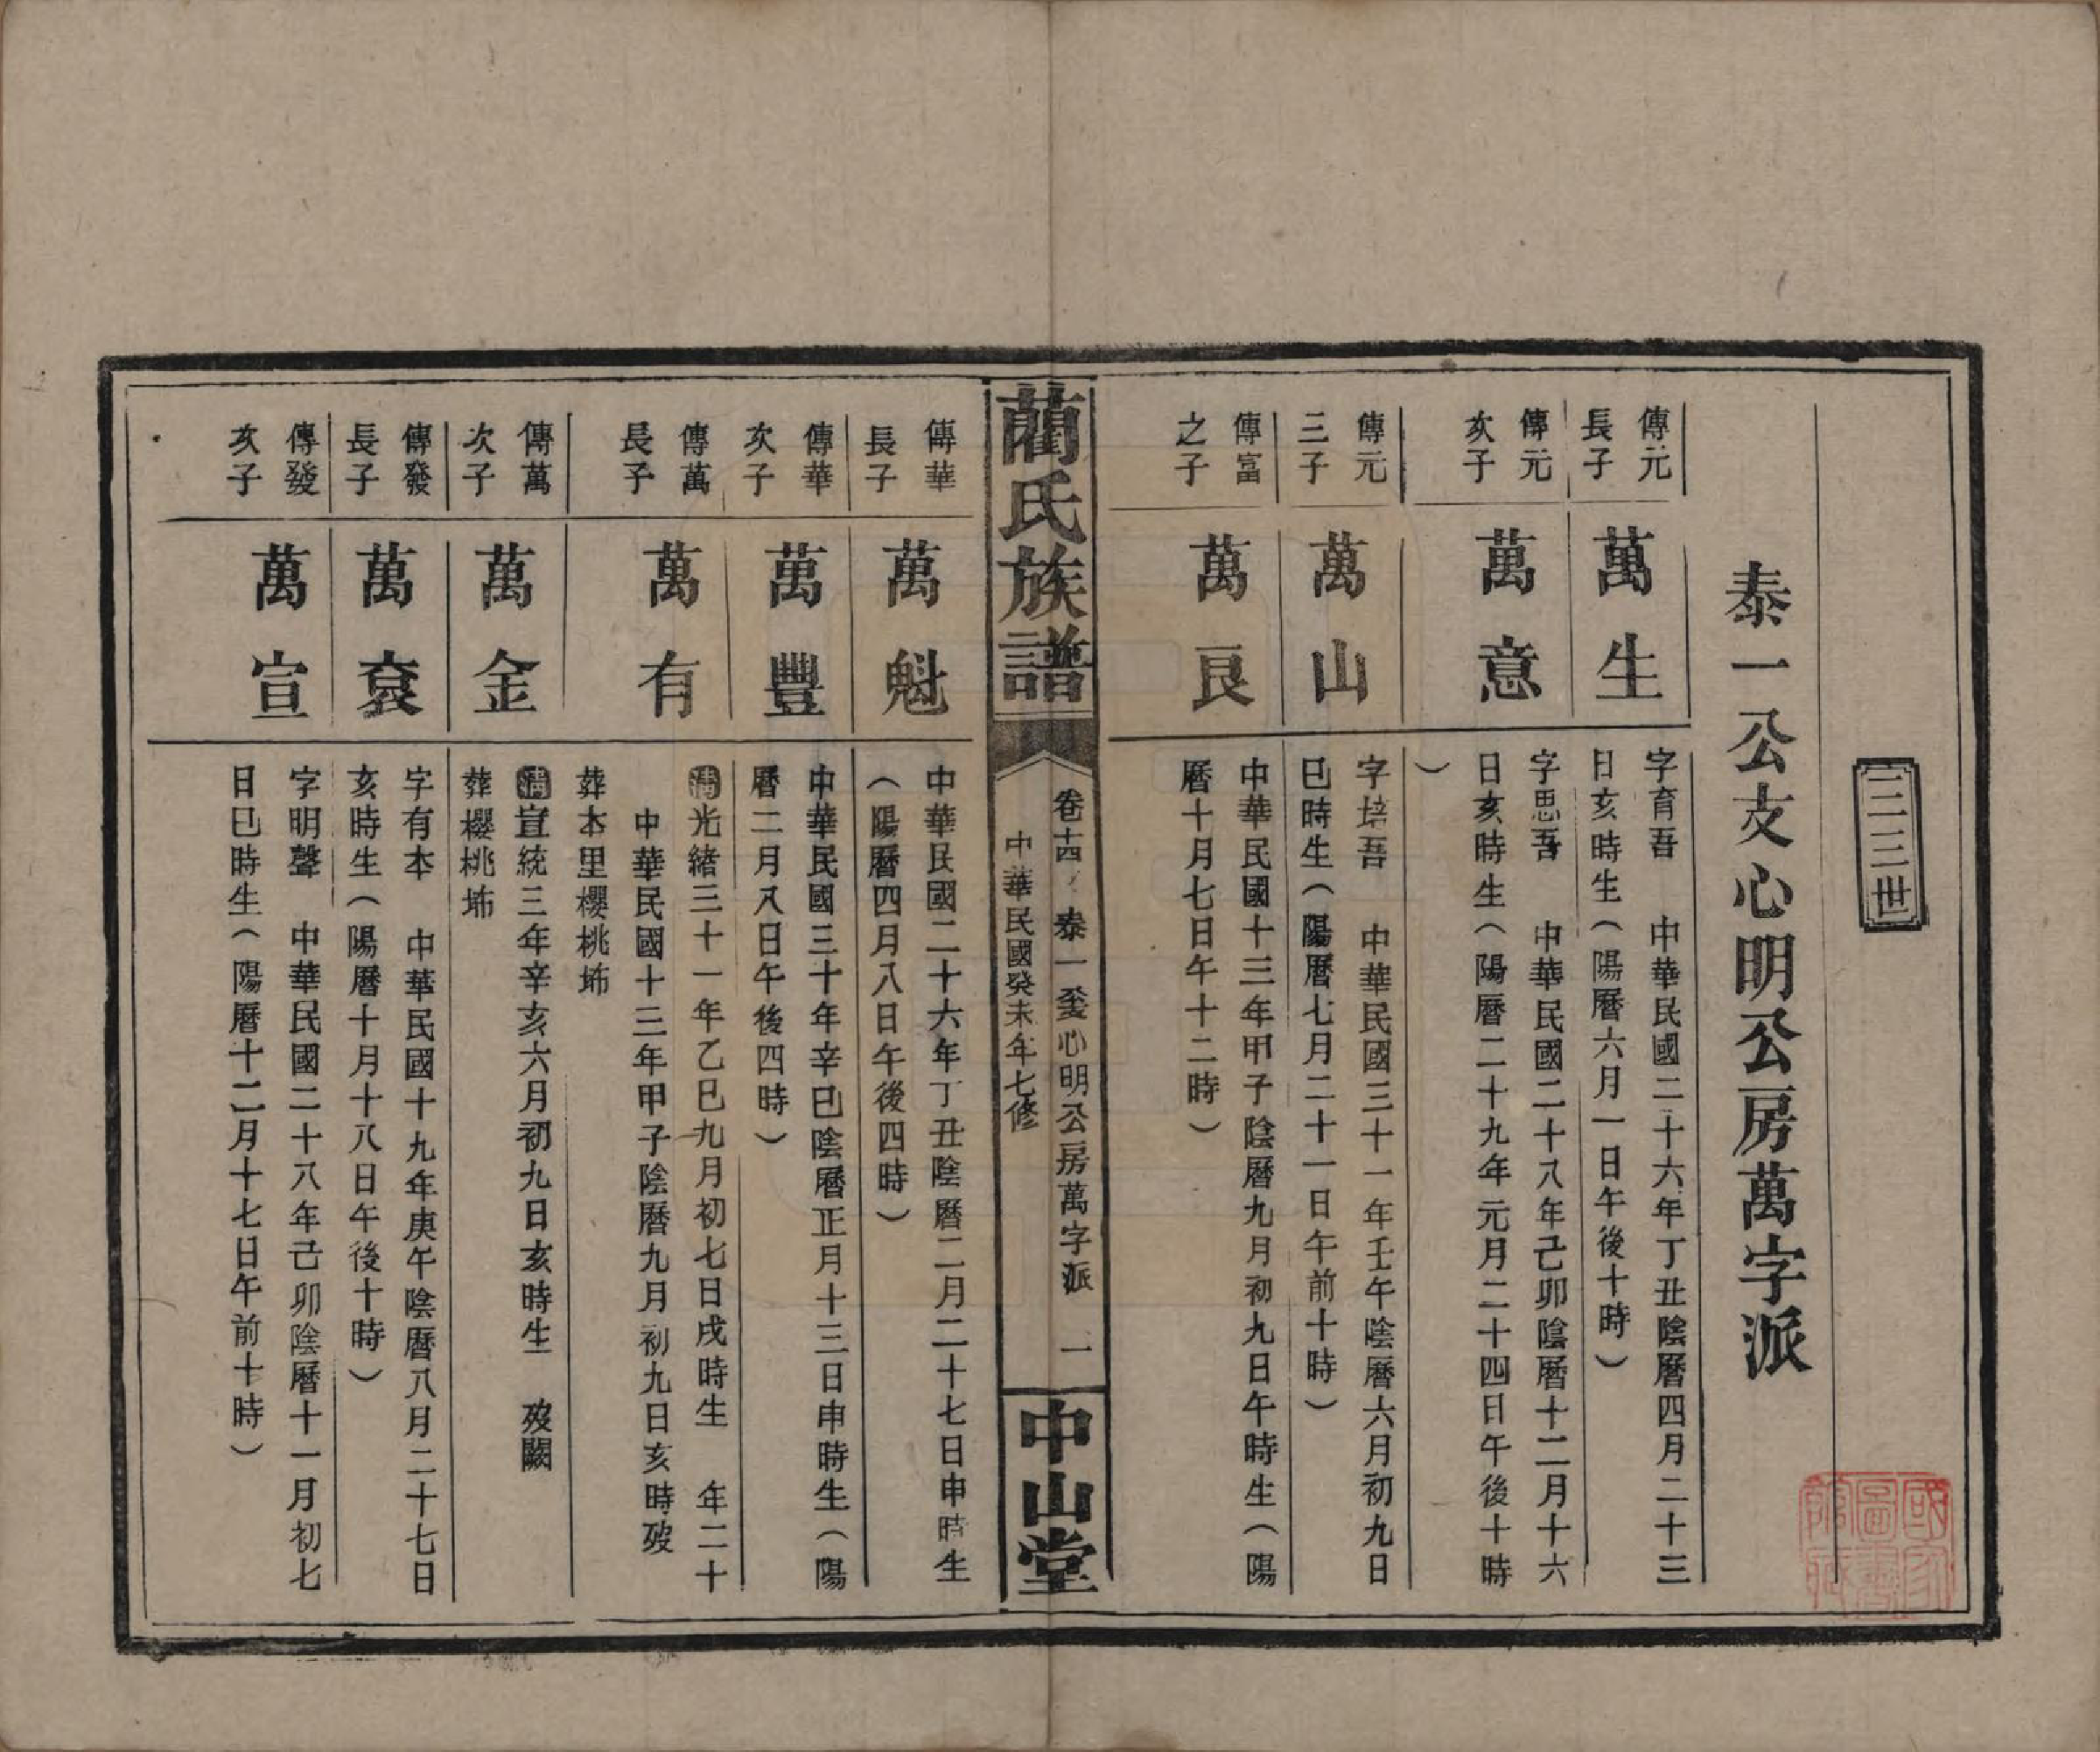 三三世
泰一公支心明公房萬字派
傳元
長子
萬生
字育吾　中華民國二十六年丁丑陰曆四月二十三
日亥時生（陽曆六月一日午後十時）
傳元
次子
萬意
字思吾　中華民國二十八年己卯陰曆十二月十六
日亥時生（陽曆二十九年元月二十四日午後十時
）
傳元
三子
萬山
字培吾　中華民國三十一年壬午陰曆六月初九日
巳時生（陽曆七月二十一日午前十時）
傳富
之子
萬良
中華民國十三年甲子陰曆九月初九日午時生（陽
曆十月七日午十二時）
藺氏族譜
卷十四　泰一至心明公房萬字派　一
中華民國癸未年七修
中山堂
傳華
長子
萬魁
中華民國二十六年丁丑陰曆二月二十七日申時生
（陽曆四月八日午後四時）
傳華
次子
萬豐
中華民國三十年辛巳陰曆正月十三日申時生（陽
曆二月八日午後四時）
傳萬
長子
萬有
清光緒三十一年乙巳九月初七日戌時生　年二十
中華民國十三年甲子陰曆九月初九日亥時歿
葬本里櫻桃㘵
傳萬
次子
萬金
清宣統三年辛亥六月初九日亥時生　歿闕
葬櫻桃㘵
傳發
長子
萬袞
字有本　中華民國十九年庚午陰曆八月二十七日
亥時生（陽曆十月十八日午後十時）
傳發
次子
萬宣
字明聲　中華民國二十八年己卯陰曆十一月初七
日巳時生（陽曆十二月十七日午前十時）
國家圖書館藏書